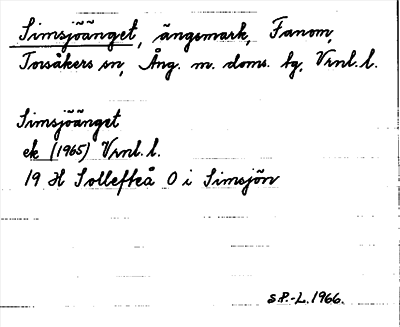 Simsjöänget, ängsmark, Fanom,
Torsåkers sn, Ång. m. doms. lg, Vrnl. l.
Simsjöänget
ek (1965) Vrnl. l.
19 H Sollefteå O i Simsjön
SP.-L. 1966.